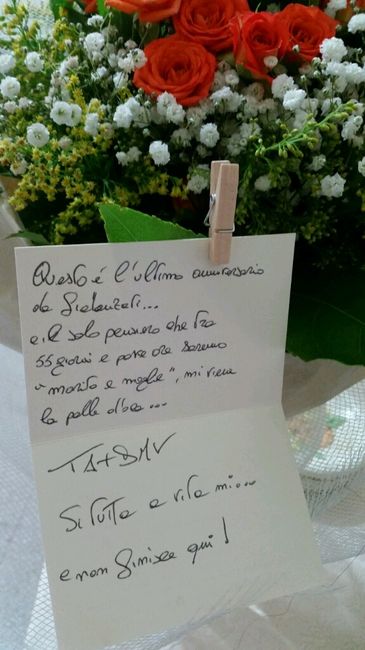 Questo é l'ultimo anniversario
da fidanzati...
e il solo pensiero che tra
55 giorni e poche ore saremo
"marito e moglie", mi viene
la pelle d'oca...
TA+DMV
Si tutta a vita mia...
e non finisce qui!